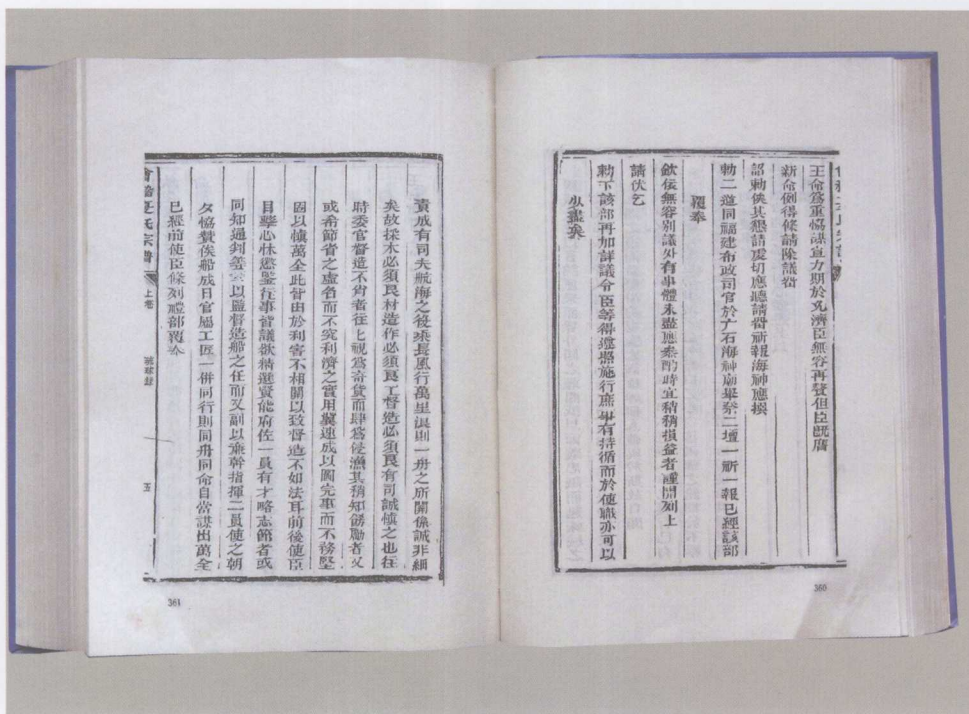 王命爲重恊謀宣力期於允濟臣無容再贅但臣既膺
新命例得條請除議畨
詔勅俟其懇請處切應聽請畨祈報海神應撰
勅二道同福建布政司官於广石海神廟舉祭二壇一祈一報已經該部
覆奉
欽依無容別議外有事體未盡應叅酌時宜精稍損益者謹開列上
請伏乞
勅下該部再加詳議令臣等得遵照施行庶畢有持循而於使職亦可以
少盡矣
360
責成有司夫航海之役乘長風行萬里濤則一舟之所關係誠非細
矣故採木必須良材造作必須良工督造必須良有司誠愼之也往
時委官督造不肖者往上視爲奇貨而肆爲侵漁其稍知勵者又
或希節省之虛名而不究利濟之實用冀速成以圖完事而不務堅
固以愼萬全此皆由於利害不相關以致督造不如法耳前後使臣
目擊心怵懲鑒往事皆議欲精選賢能府佐一員有才略志節者或
同知通判等官以監督造船之任而又副以亷幹指揮二員使之朝
夕恊贊俟船成日官屬工匠一併同行則同舟同命自當謀出萬全
已經前使臣條列禮部覆今
會稽夏氏宗譜
上卷
琉球錄
五
361